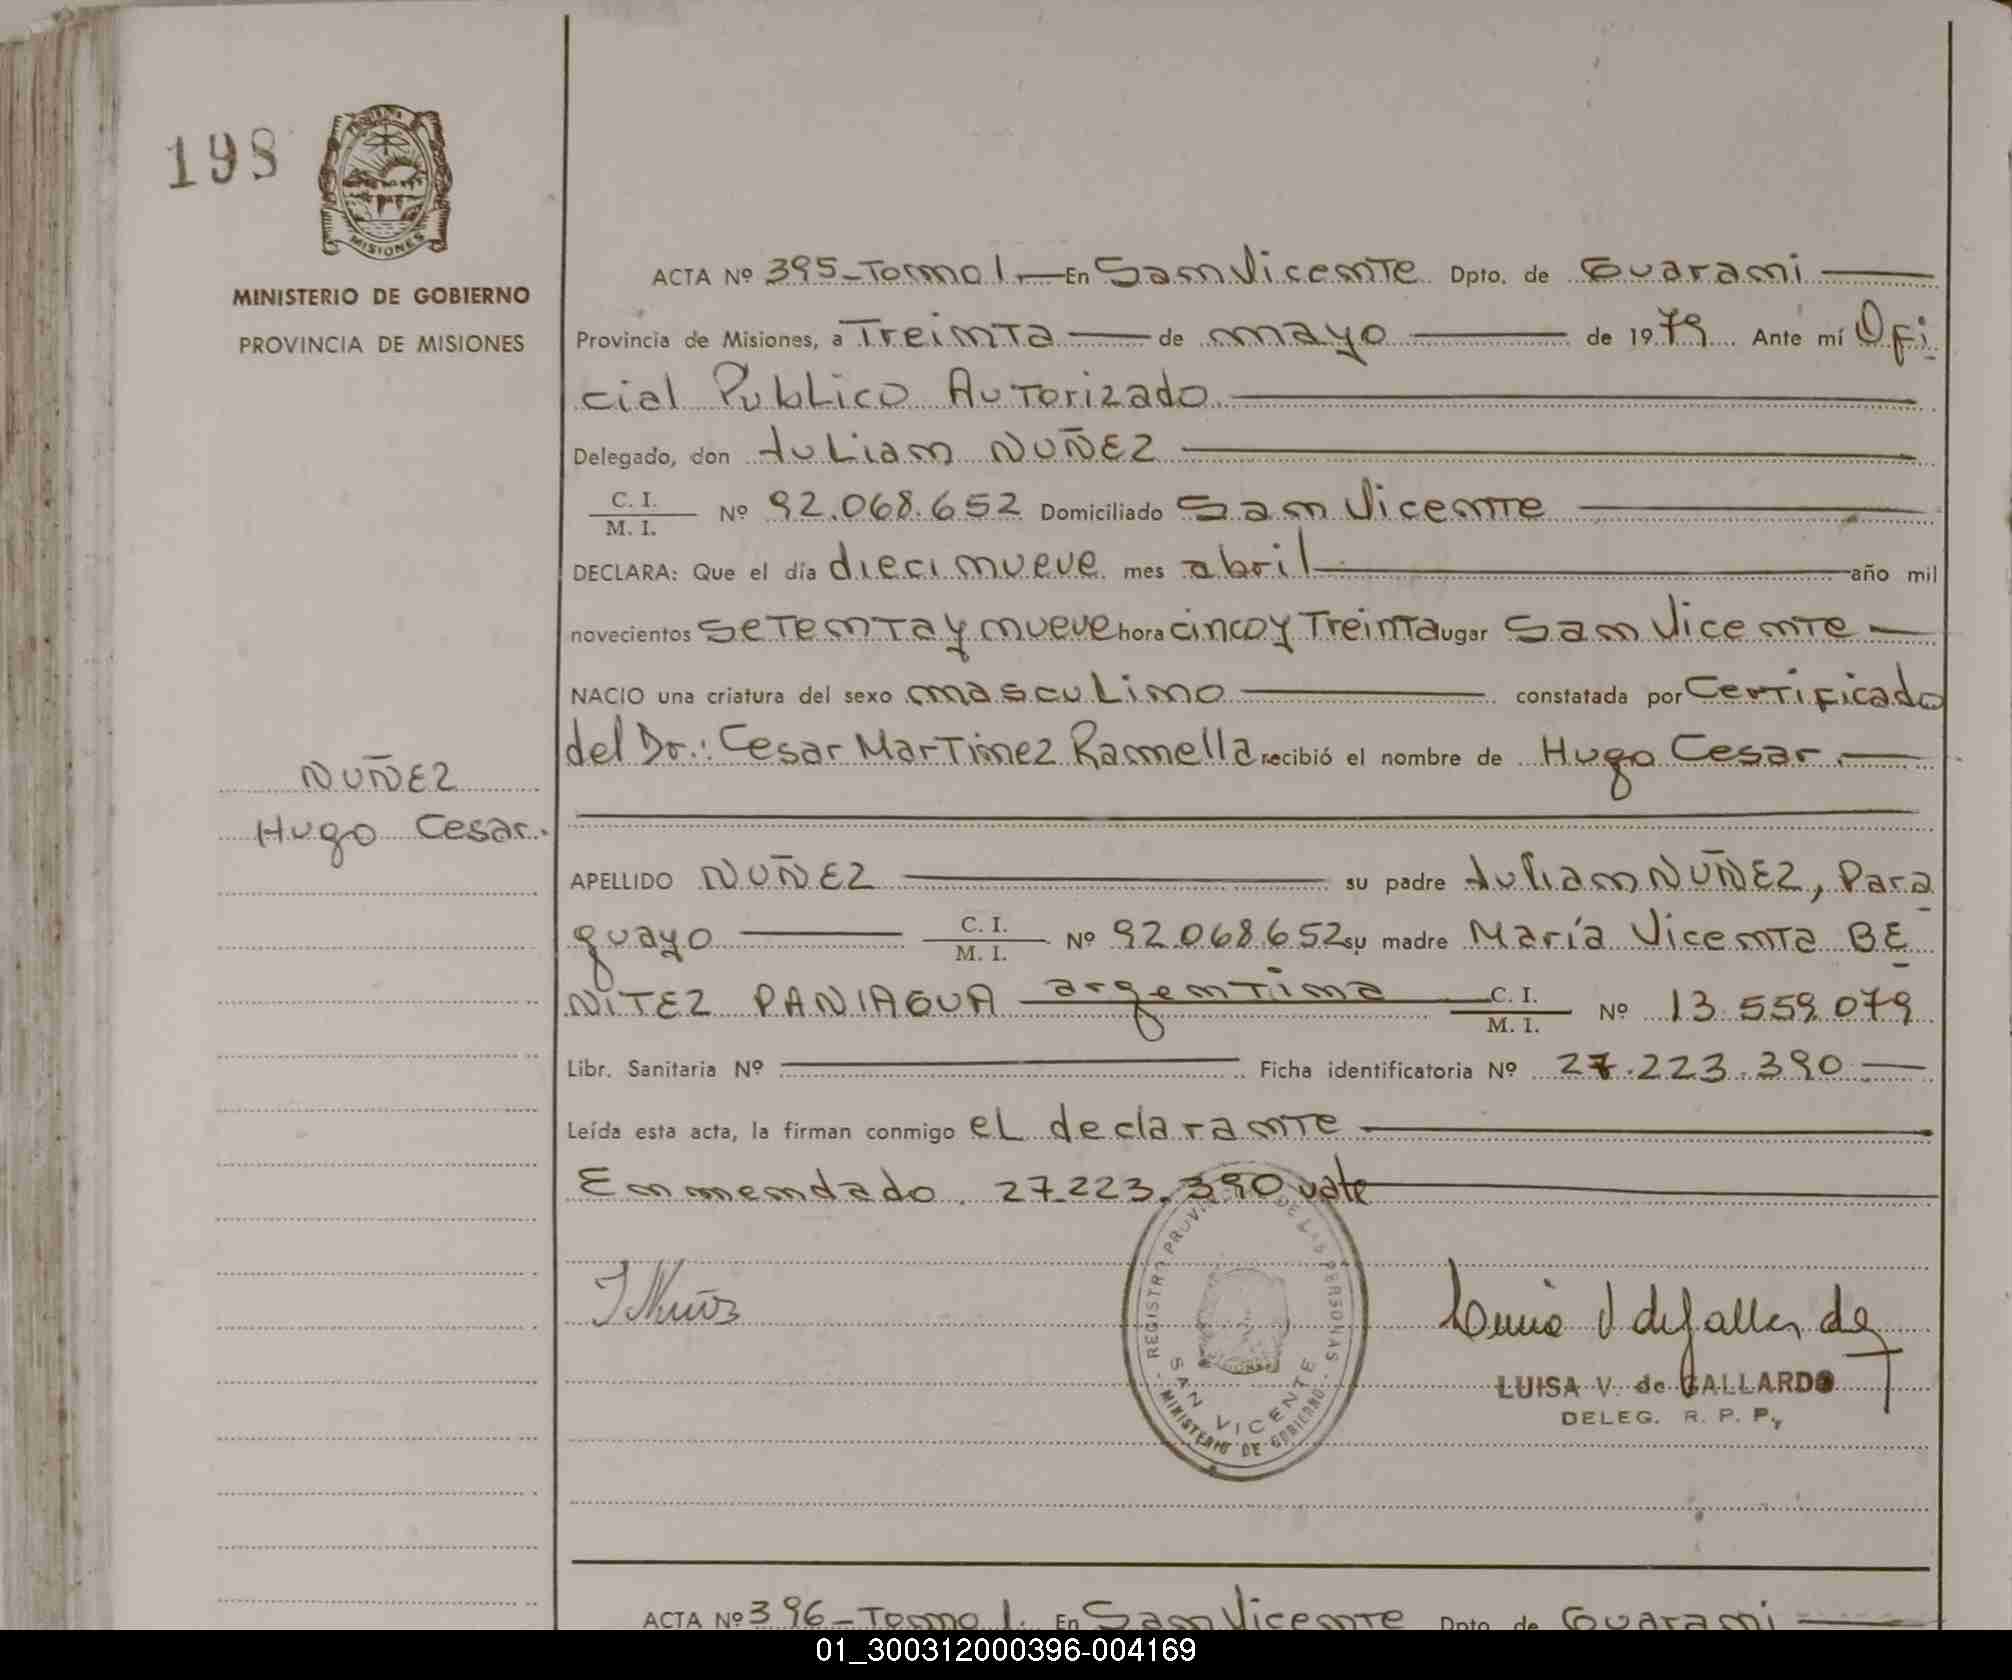 198
MISIONES
MINISTERIO DE GOBIERNO
PROVINCIA DE MISIONES
ACTA Nº 395-Tomo I.— En San Vicente Dpto. de Guarani
Provincia de Misiones, a Treinta de mayo de 1979 Ante mí Ofi
cial Publico Autorizado
Delegado, don Julian NUÑEZ
C. I.
M. I. Nº 92.068.652 Domiciliado San Vicente
DECLARA: Que el día diecinueve mes abril año mil
novecientos setenta y nueve hora cinco y Treinta lugar San Vicente
NACIO una criatura del sexo masculino constatada por Certificado
del Dr.: Cesar Martinez Ramella recibió el nombre de Hugo Cesar
NUÑEZ
Hugo Cesar.
APELLIDO NUÑEZ su padre Julian NUÑEZ, Para
guayo C. I.
M. I. Nº 92.068.652 su madre María Vicenta BE
NITEZ PANIAGUA argentina C. I.
M. I. Nº 13.559.079
Libr. Sanitaria Nº Ficha identificatoria Nº 27.223.390
Leída esta acta, la firman conmigo el declarante
Enmendado. 27.223.390 vale
REGISTRO PROVINCIAL DE LAS PERSONAS
SAN VICENTE
MINISTERIO DE GOBIERNO
J Nuñz
LUISA V. de GALLARDO
DELEG. R. P. P.
ACTA Nº 396-Tomo I. En San Vicente Dpto. de Guarani
01_300312000396-004169